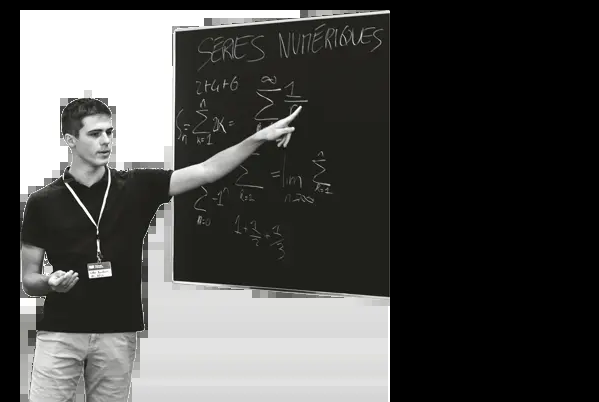 SÉRIES NUMÉRIQUES
2+4+6
Sn = n ∑ k=1 2K =
∞ ∑ 1
∑ n=0 -1^n
∑ k=1 = lim n→∞ n ∑ k=1
1 + 1/2 + 1/3